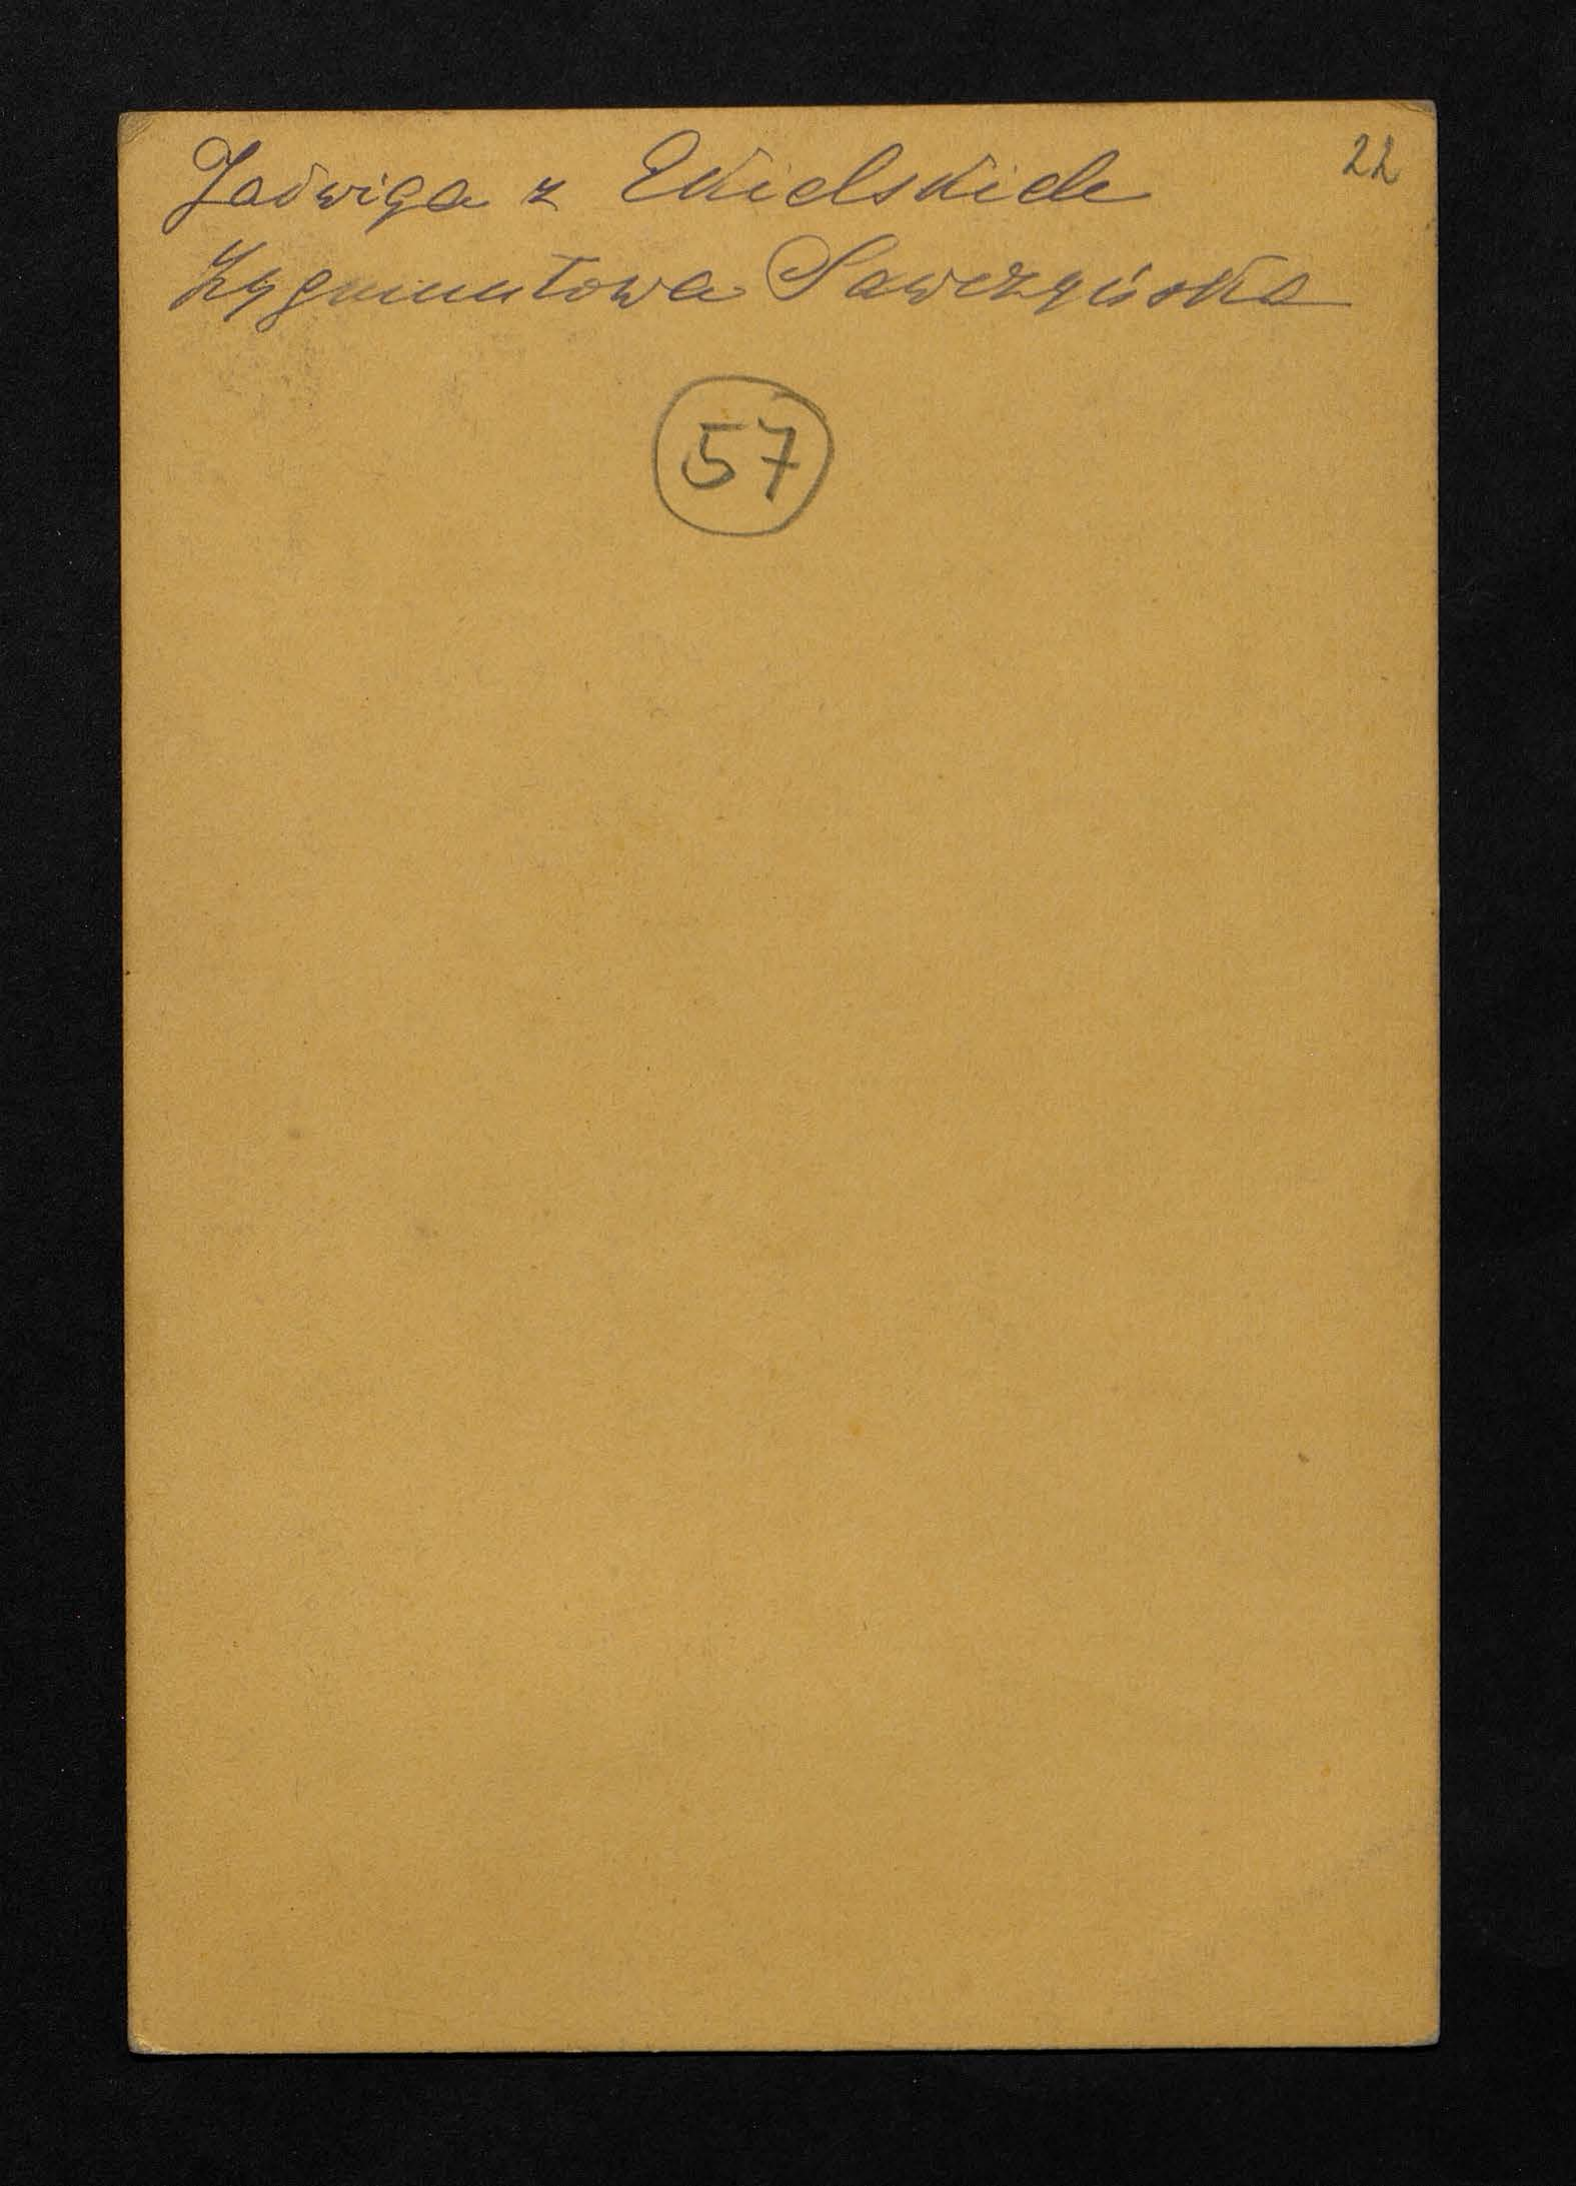 Jadwiga z Ekielskich 22
Zygmuntowa Sawczyńska
57